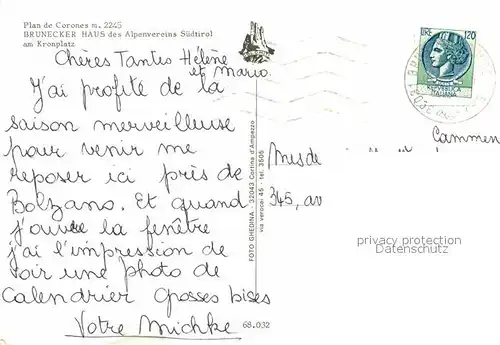 Plan de Corones m. 2245
BRUNECKER HAUS des Alpenvereins Südtirol
am Kronplatz
Chères Tantes Hélène
et Mario.
J'ai profité de la
saison merveilleuse
pour venir me
reposer ici près de
Bolzano. Et quand
j'ouvre la fenêtre
j'ai l'impression de
voir une photo de
Calendrier Grosses bises
Votre Michke
68.032
FOTO GHEDINA - 32043 Cortina d'Ampezzo
via verocai 45 - tel. 3505
LIRE 120
Cammen
345, av
privacy protection
Datenschutz